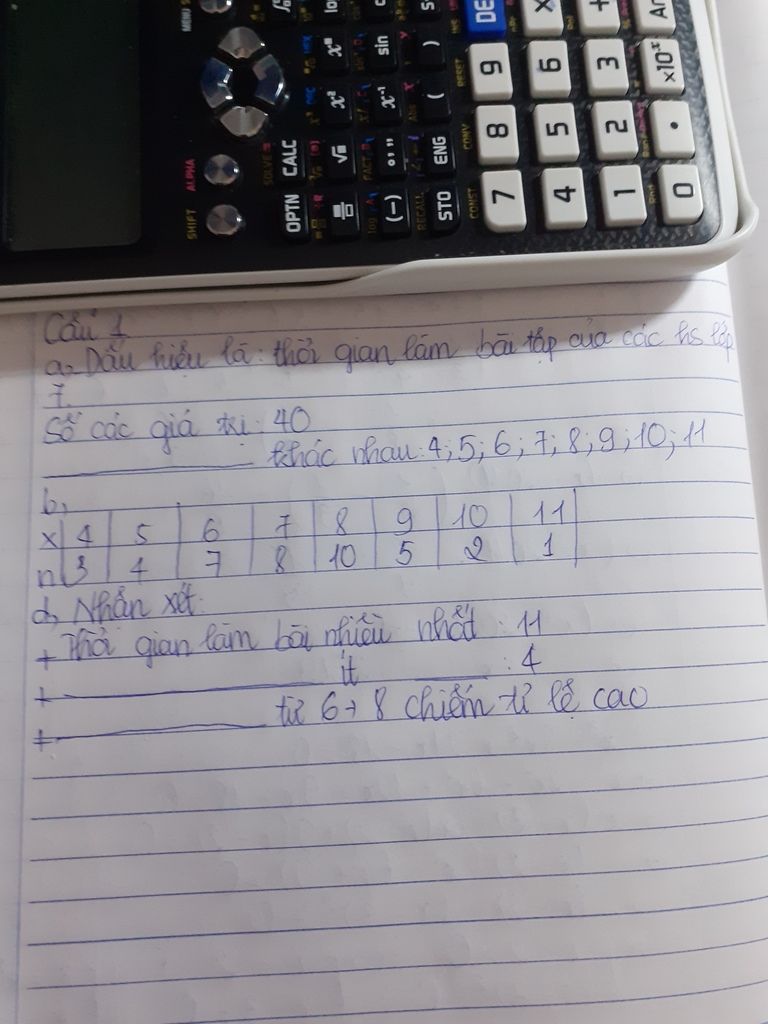 SHIFT ALPHA MENU
OPTN CALC SOLVE=
√ x² xⁿ
(−) °,,, x⁻¹ sin
STO ENG ( )
RECALL
DE
7 8 9
CONST CONV RESET
4 5 6 ×
1 2 3 +
0 • ×10ˣ An
Câu 1
a, Dấu hiệu là: thời gian làm bài tập của các hs lớp
7.
Số các giá trị: 40
khác nhau: 4; 5; 6; 7; 8; 9; 10; 11
b,
x 4 5 6 7 8 9 10 11
n 3 4 7 8 10 5 2 1
d, Nhận xét:
+ Thời gian làm bài nhiều nhất : 11
+ ít : 4
+ từ 6→8 chiếm tỉ lệ cao